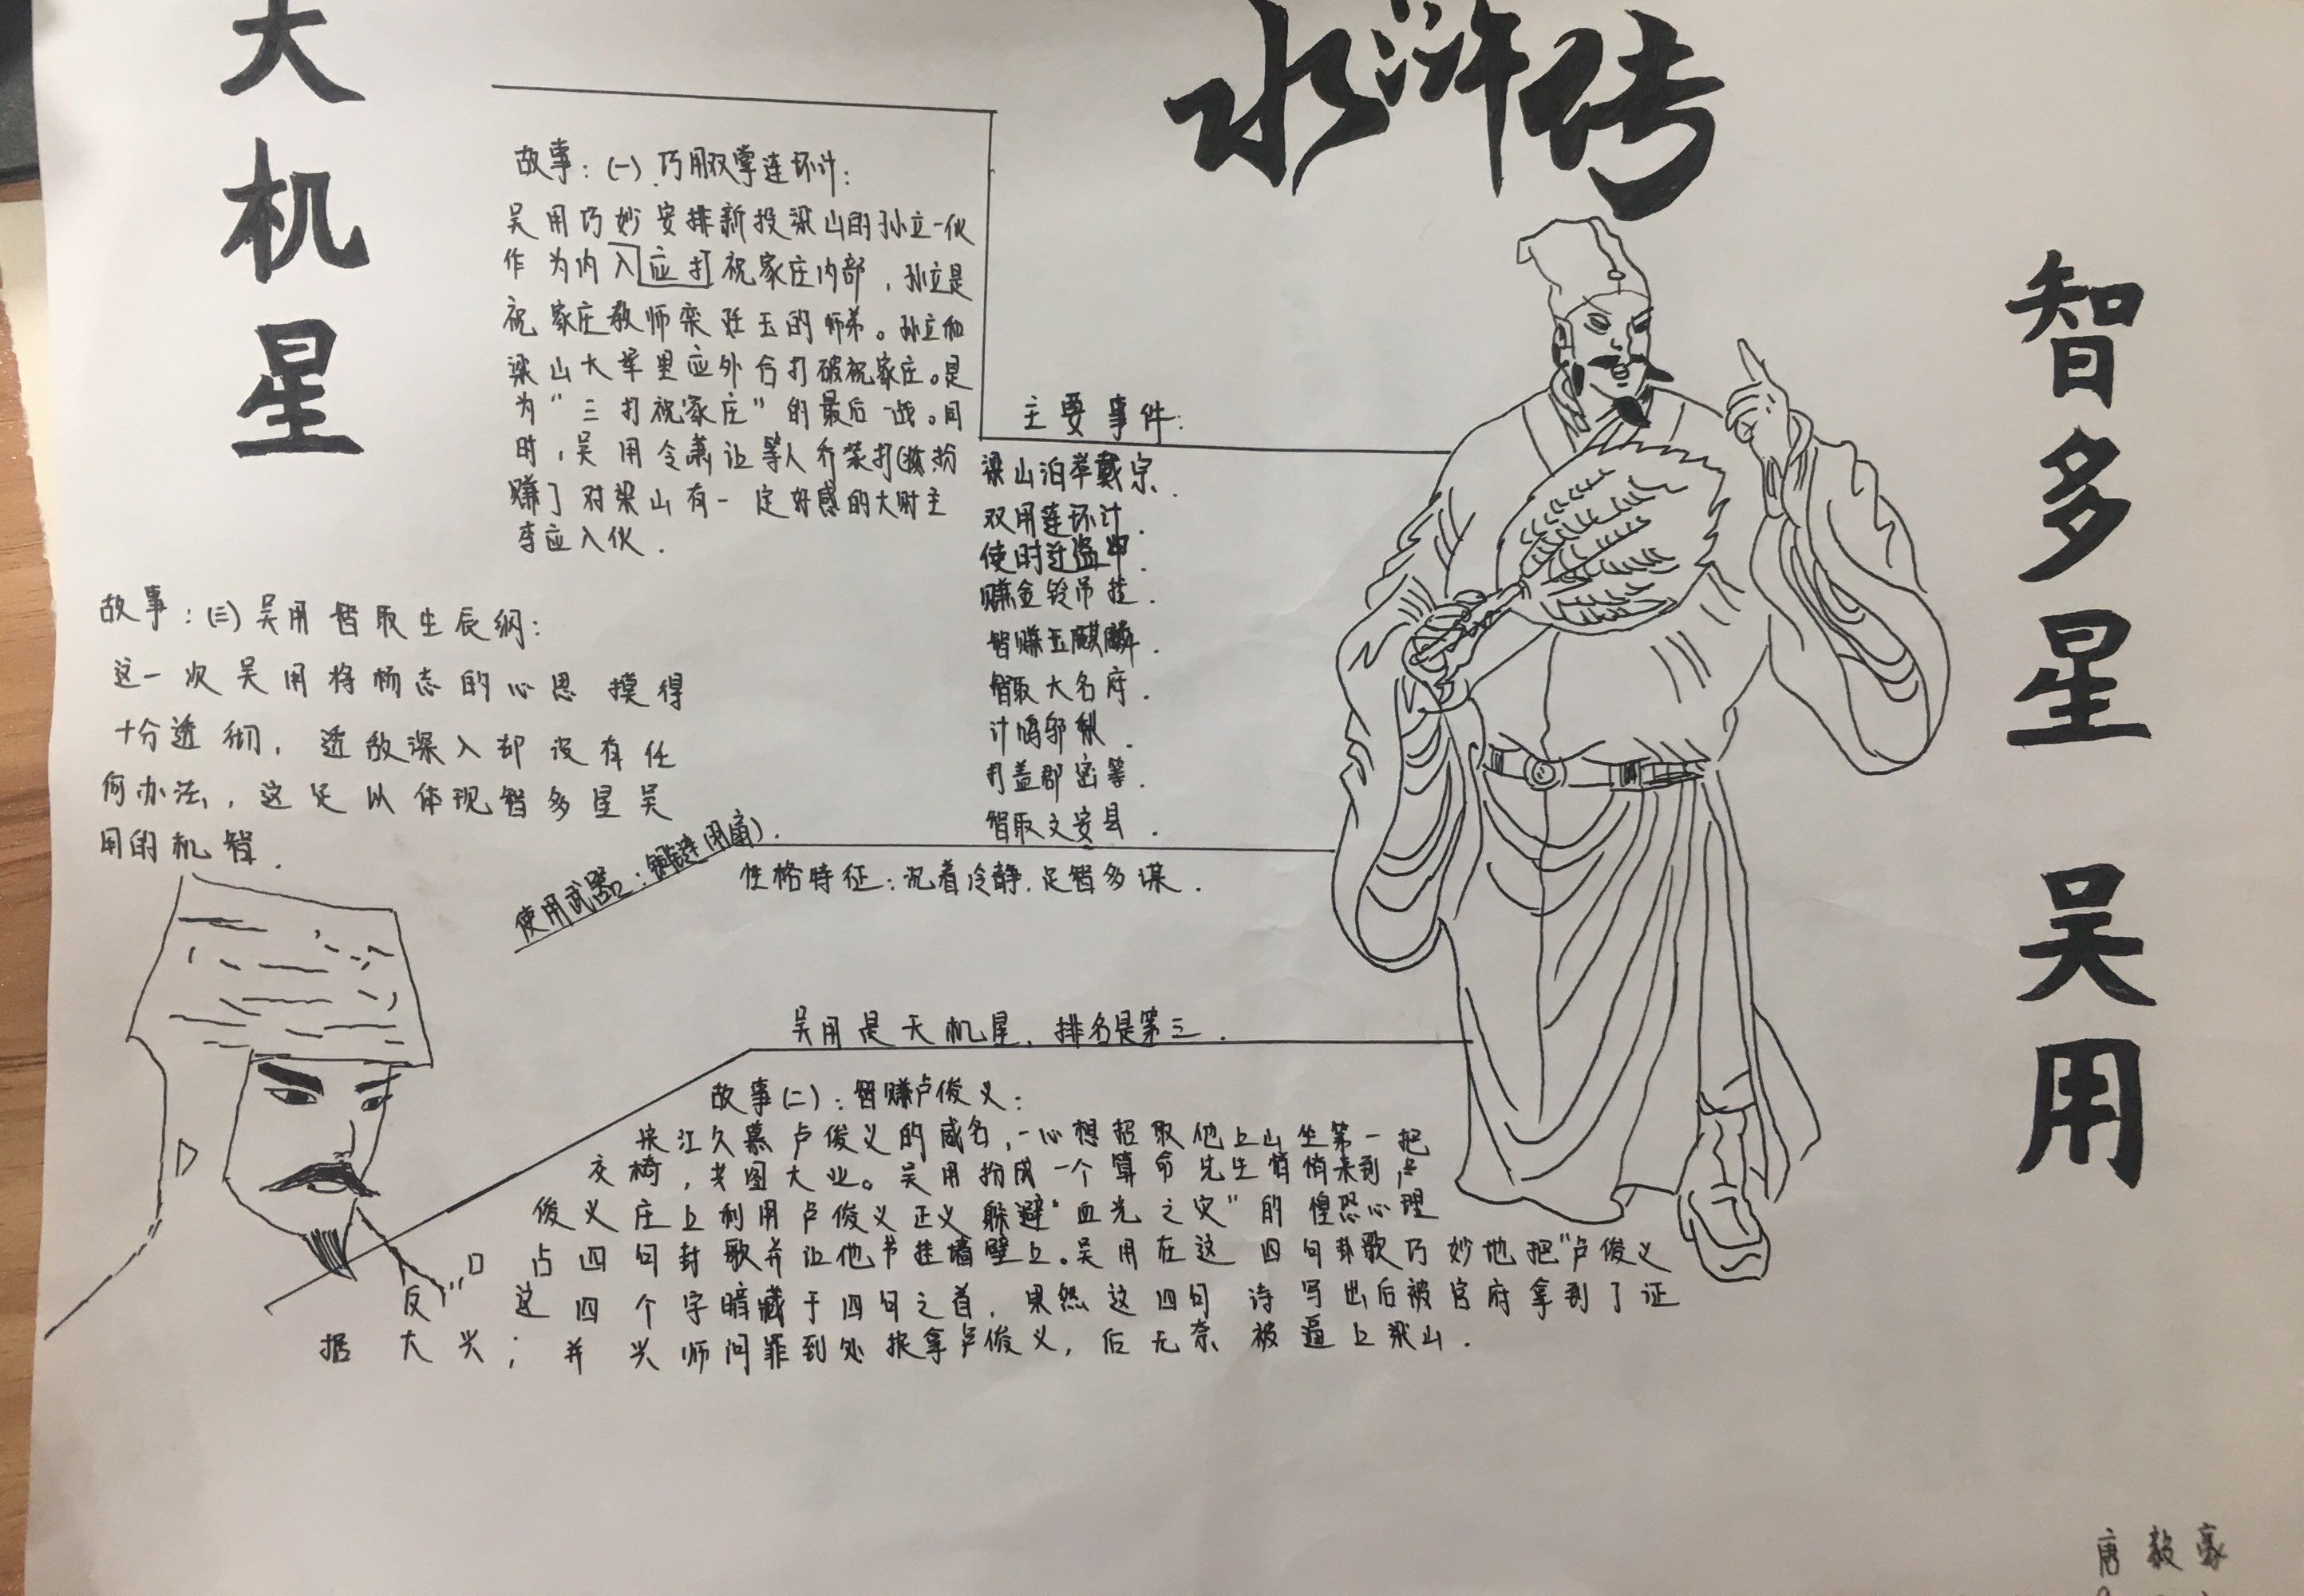 水浒传
天机星
智多星 吴用
故事：(一).巧用双掌连环计：
吴用巧妙安排新投梁山的孙立一伙
作为内入应打祝家庄内部，孙立是
祝家庄教师栾廷玉的师弟。孙立和
梁山大军里应外合打破祝家庄。是
为“三打祝家庄”的最后一战。同
时，吴用令萧让等人乔装打扮
赚了对梁山有一定好感的大财主
李应入伙.
主要事件：
梁山泊举戴宗.
双用连环计.
使时迁盗甲.
赚金铃吊挂.
智赚玉麒麟.
智取大名府.
计鸩邬梨.
打盖郡密等.
智取文安县.
故事：(三)吴用智取生辰纲：
这一次吴用将杨志的心思摸得
十分透彻，透敌深入却没有任
何办法，这足以体现智多星吴
用的机智.
使用武器：铜链(闭扇).
性格特征：沉着冷静.足智多谋.
吴用是天机星，排名是第三.
故事(二)：智赚卢俊义：
宋江久慕卢俊义的威名，一心想招取他上山坐第一把
交椅，共图大业。吴用扮成一个算命先生悄悄来到卢
俊义庄上利用卢俊义正义躲避“血光之灾”的惶恐心理
口占四句卦歌并让他书挂墙壁上。吴用在这四句卦歌巧妙地把“卢俊义
反”这四个字暗藏于四句之首，果然这四句诗写出后被官府拿到了证
据大兴；并兴师问罪到处捉拿卢俊义，后无奈被逼上梁山.
唐毅豪